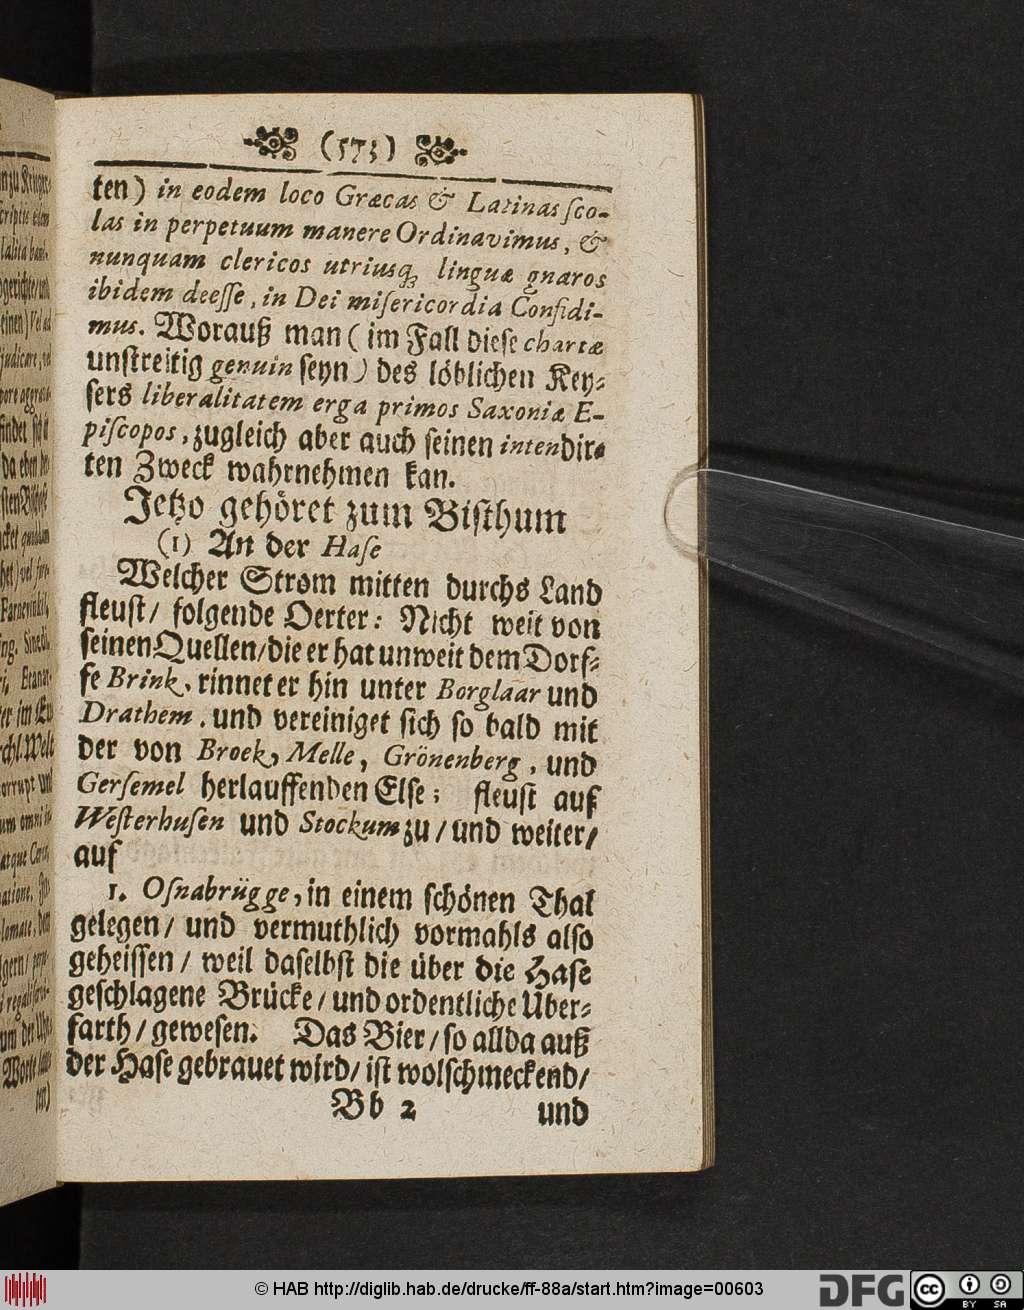 (573)
ten) in eodem loco Græcas & Latinas ſco-
las in perpetuum manere Ordinavimus, &
nunquam clericos utriusq; linguæ gnaros
ibidem deeſſe, in Dei miſericordia Confidi-
mus. Worauß man (im Fall dieſe chartæ
unſtreitig genuin ſeyn) des löblichen Key-
ſers liberalitatem erga primos Saxoniæ E-
piſcopos, zugleich aber auch ſeinen intendir-
ten Zweck wahrnehmen kan.
Jetzo gehöret zum Biſthum
(1) An der Haſe
Welcher Strom mitten durchs Land
fleuſt/ folgende Oerter: Nicht weit von
ſeinen Quellen/die er hat unweit dem Dorf-
fe Brink, rinnet er hin unter Borglaar und
Drathem, und vereiniget ſich ſo bald mit
der von Broek, Melle, Grönenberg, und
Gerſemel herlauffenden Elſe; fleuſt auf
Weſterhuſen und Stockum zu/und weiter/
auf
1. Oſnabrügge, in einem ſchönen Thal
gelegen/ und vermuthlich vormahls alſo
geheiſſen/ weil daſelbſt die über die Haſe
geſchlagene Brücke/und ordentliche Über-
farth/geweſen. Das Bier/ſo allda auß
der Haſe gebrauet wird/ iſt wolſchmeckend/
Bb 2 und
© HAB http://diglib.hab.de/drucke/ff-88a/start.htm?image=00603
DFG
cc
BY SA